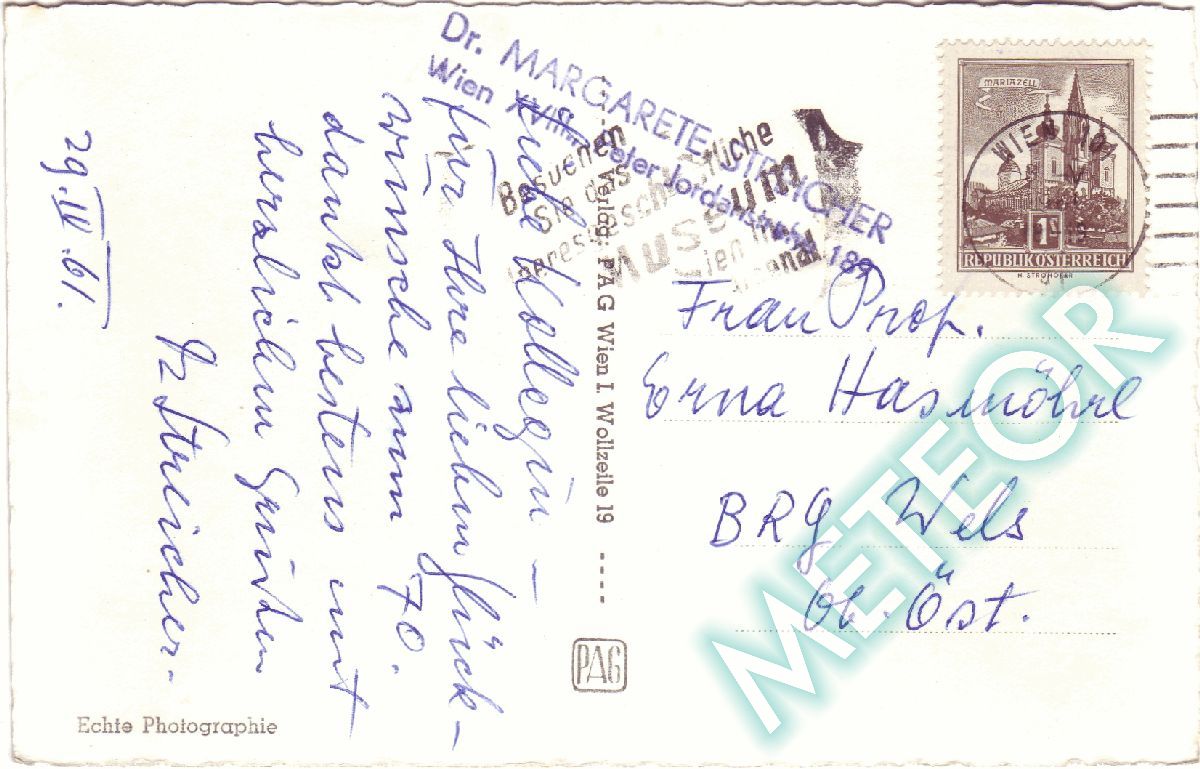 Dr. MARGARETE STREICHER
Wien XVIII., Peter Jordanstraße 189
Besuchen
Sie das
Heeresgeschichtliche
Museum
Wien III
Arsenal
MARIAZELL
WIEN 101
1S
REPUBLIK ÖSTERREICH
H. STROHOFER
Liebe Kollegin –
für Ihre lieben Glück-
wünsche zum 70.
dankt bestens mit
herzlichen Grüßen
Streicher.
29.IV.61.
Verlag: PAG Wien I. Wollzeile 19
PAG
Echte Photographie
Frau Prof.
Erna Hasmöhrl
BRG Wels
Ob. Öst.
METEOR